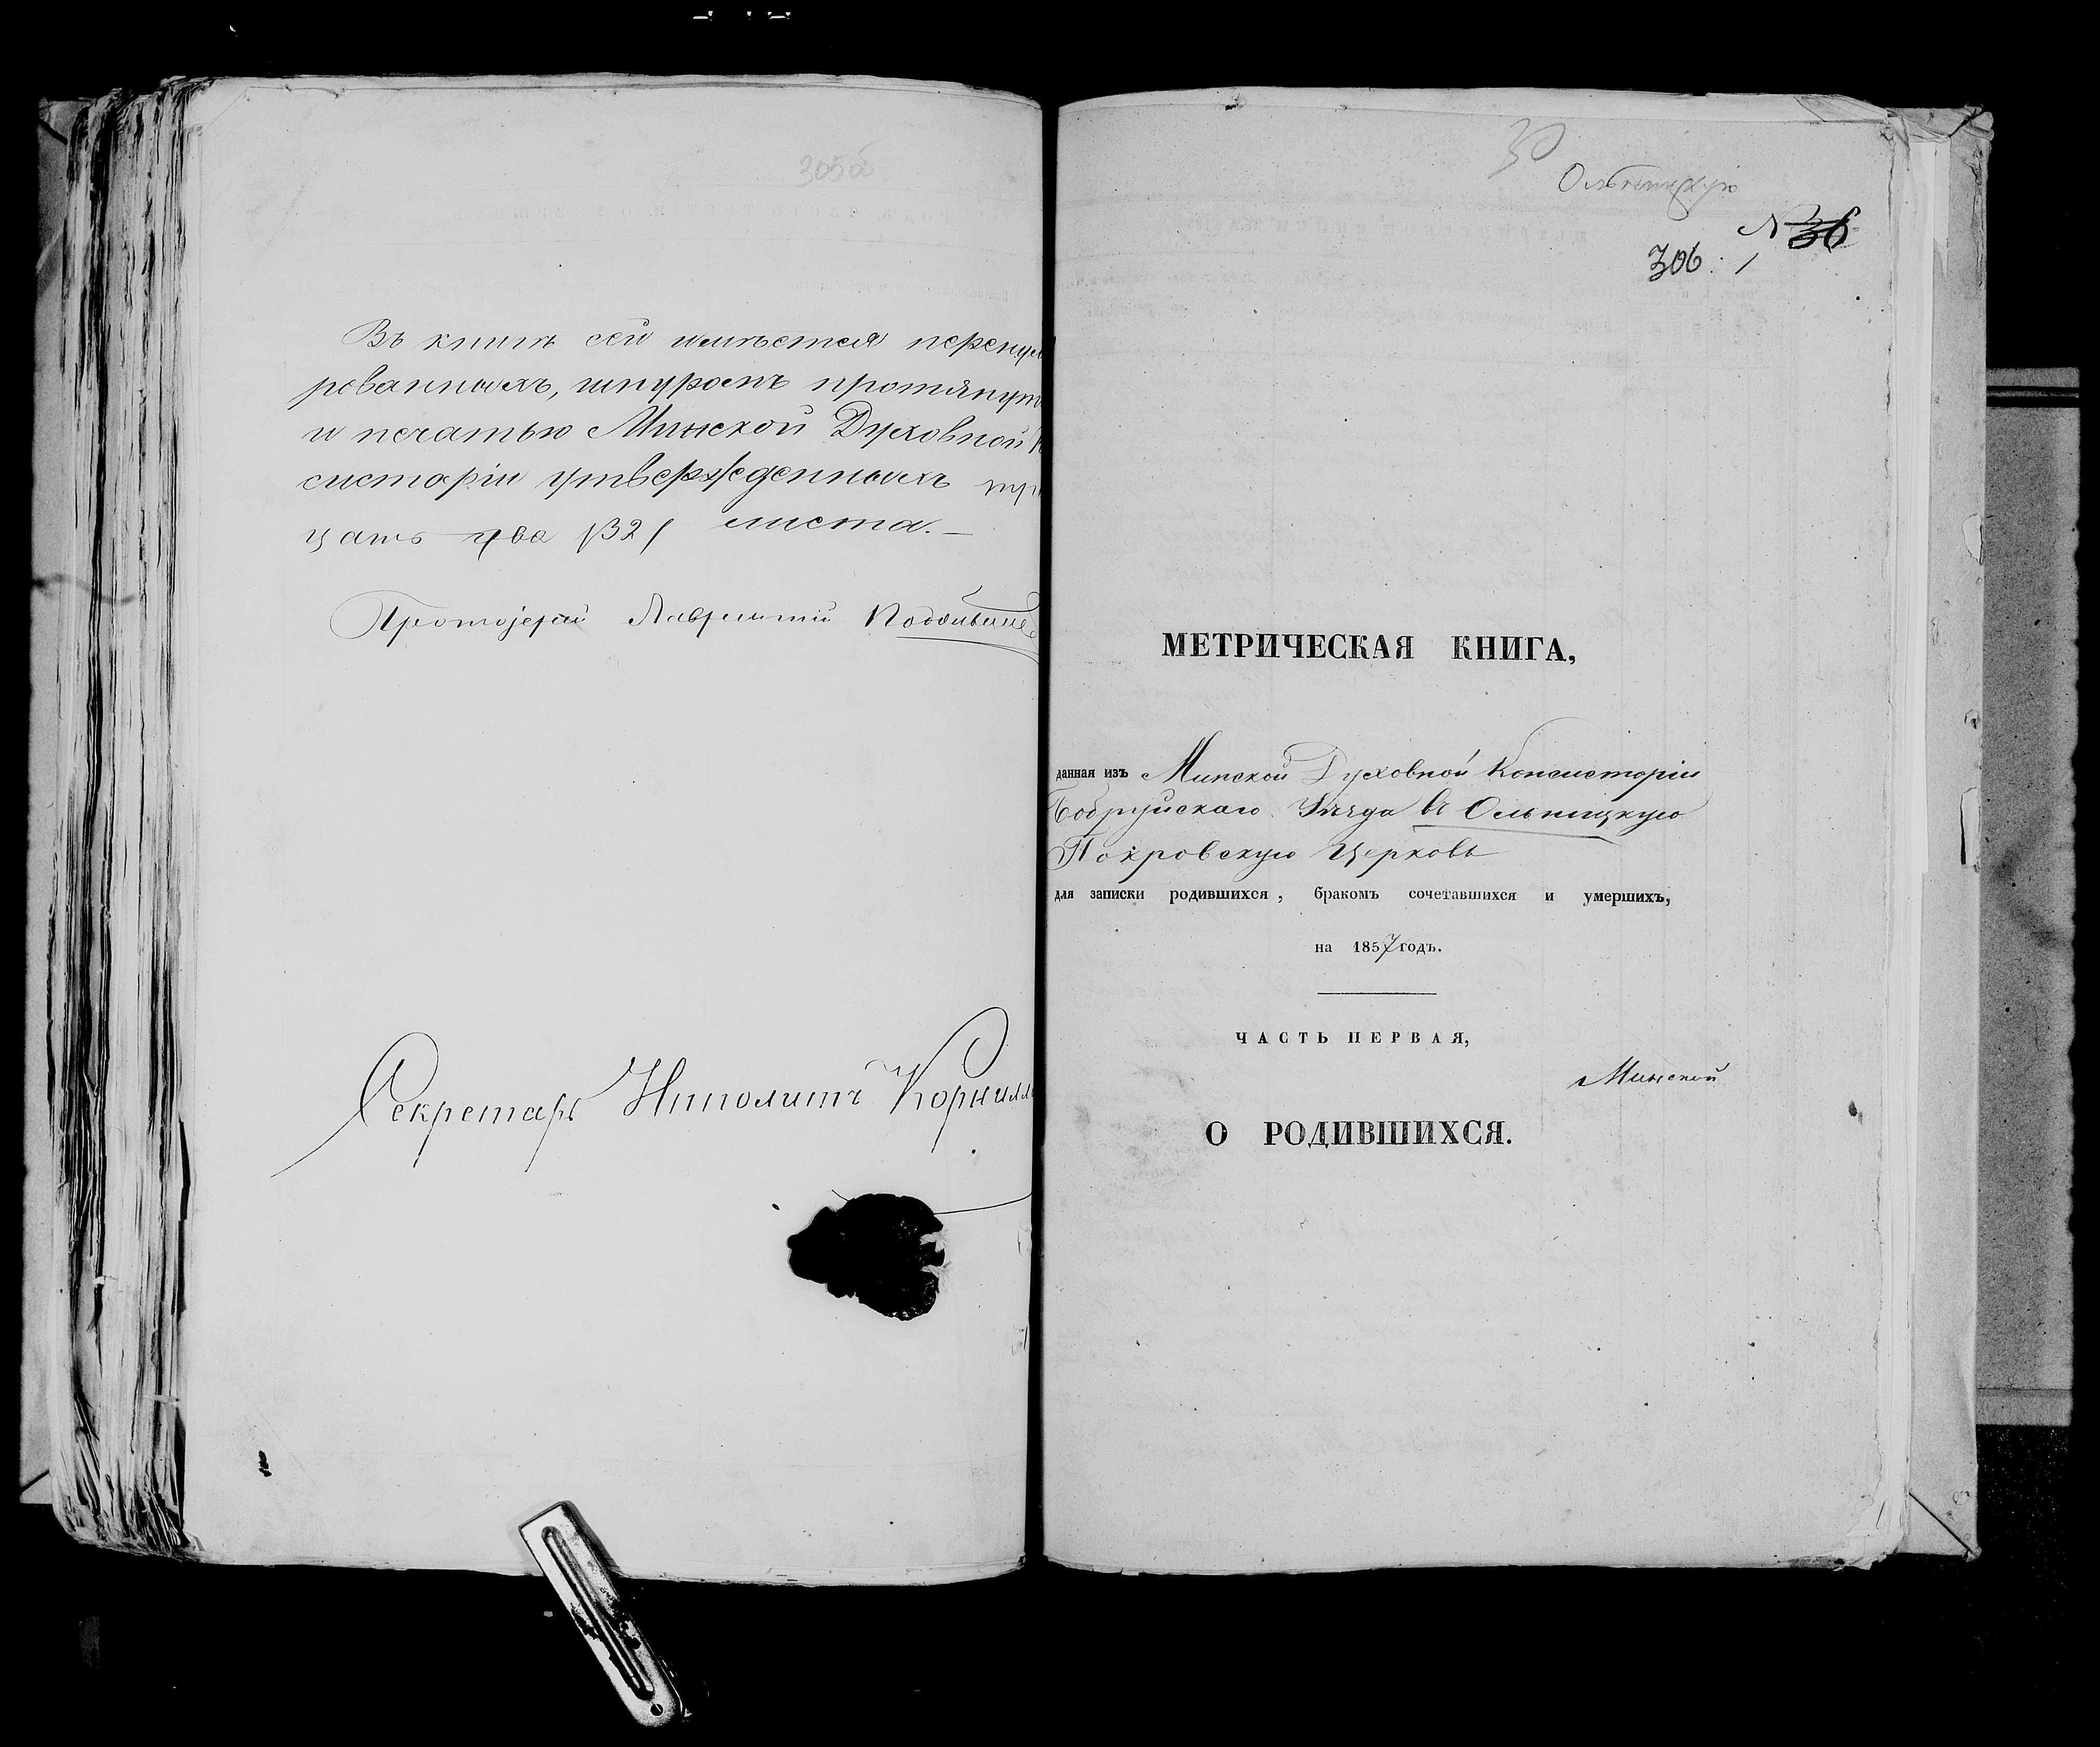 305об
Въ книгѣ сей имѣется перенуме
рованныхъ, шнуромъ протянут
и печатью Минской Духовной К
систоріи утвержденныхъ три
цать два /32/ листа.—
Протоіерей Лаврентій
Секретарь Ипполитъ Корнилл
30
Ольницкую
N 36
306. 1
МЕТРИЧЕСКАЯ КНИГА,
данная изъ Минской Духовной Консисторіи
Бобруйскаго Уѣзда въ Ольницкую
Покровскую Церковь
для записки родившихся, бракомъ сочетавшихся и умершихъ,
на 1857 годъ.
ЧАСТЬ ПЕРВАЯ,
Минской
О РОДИВШИХСЯ.